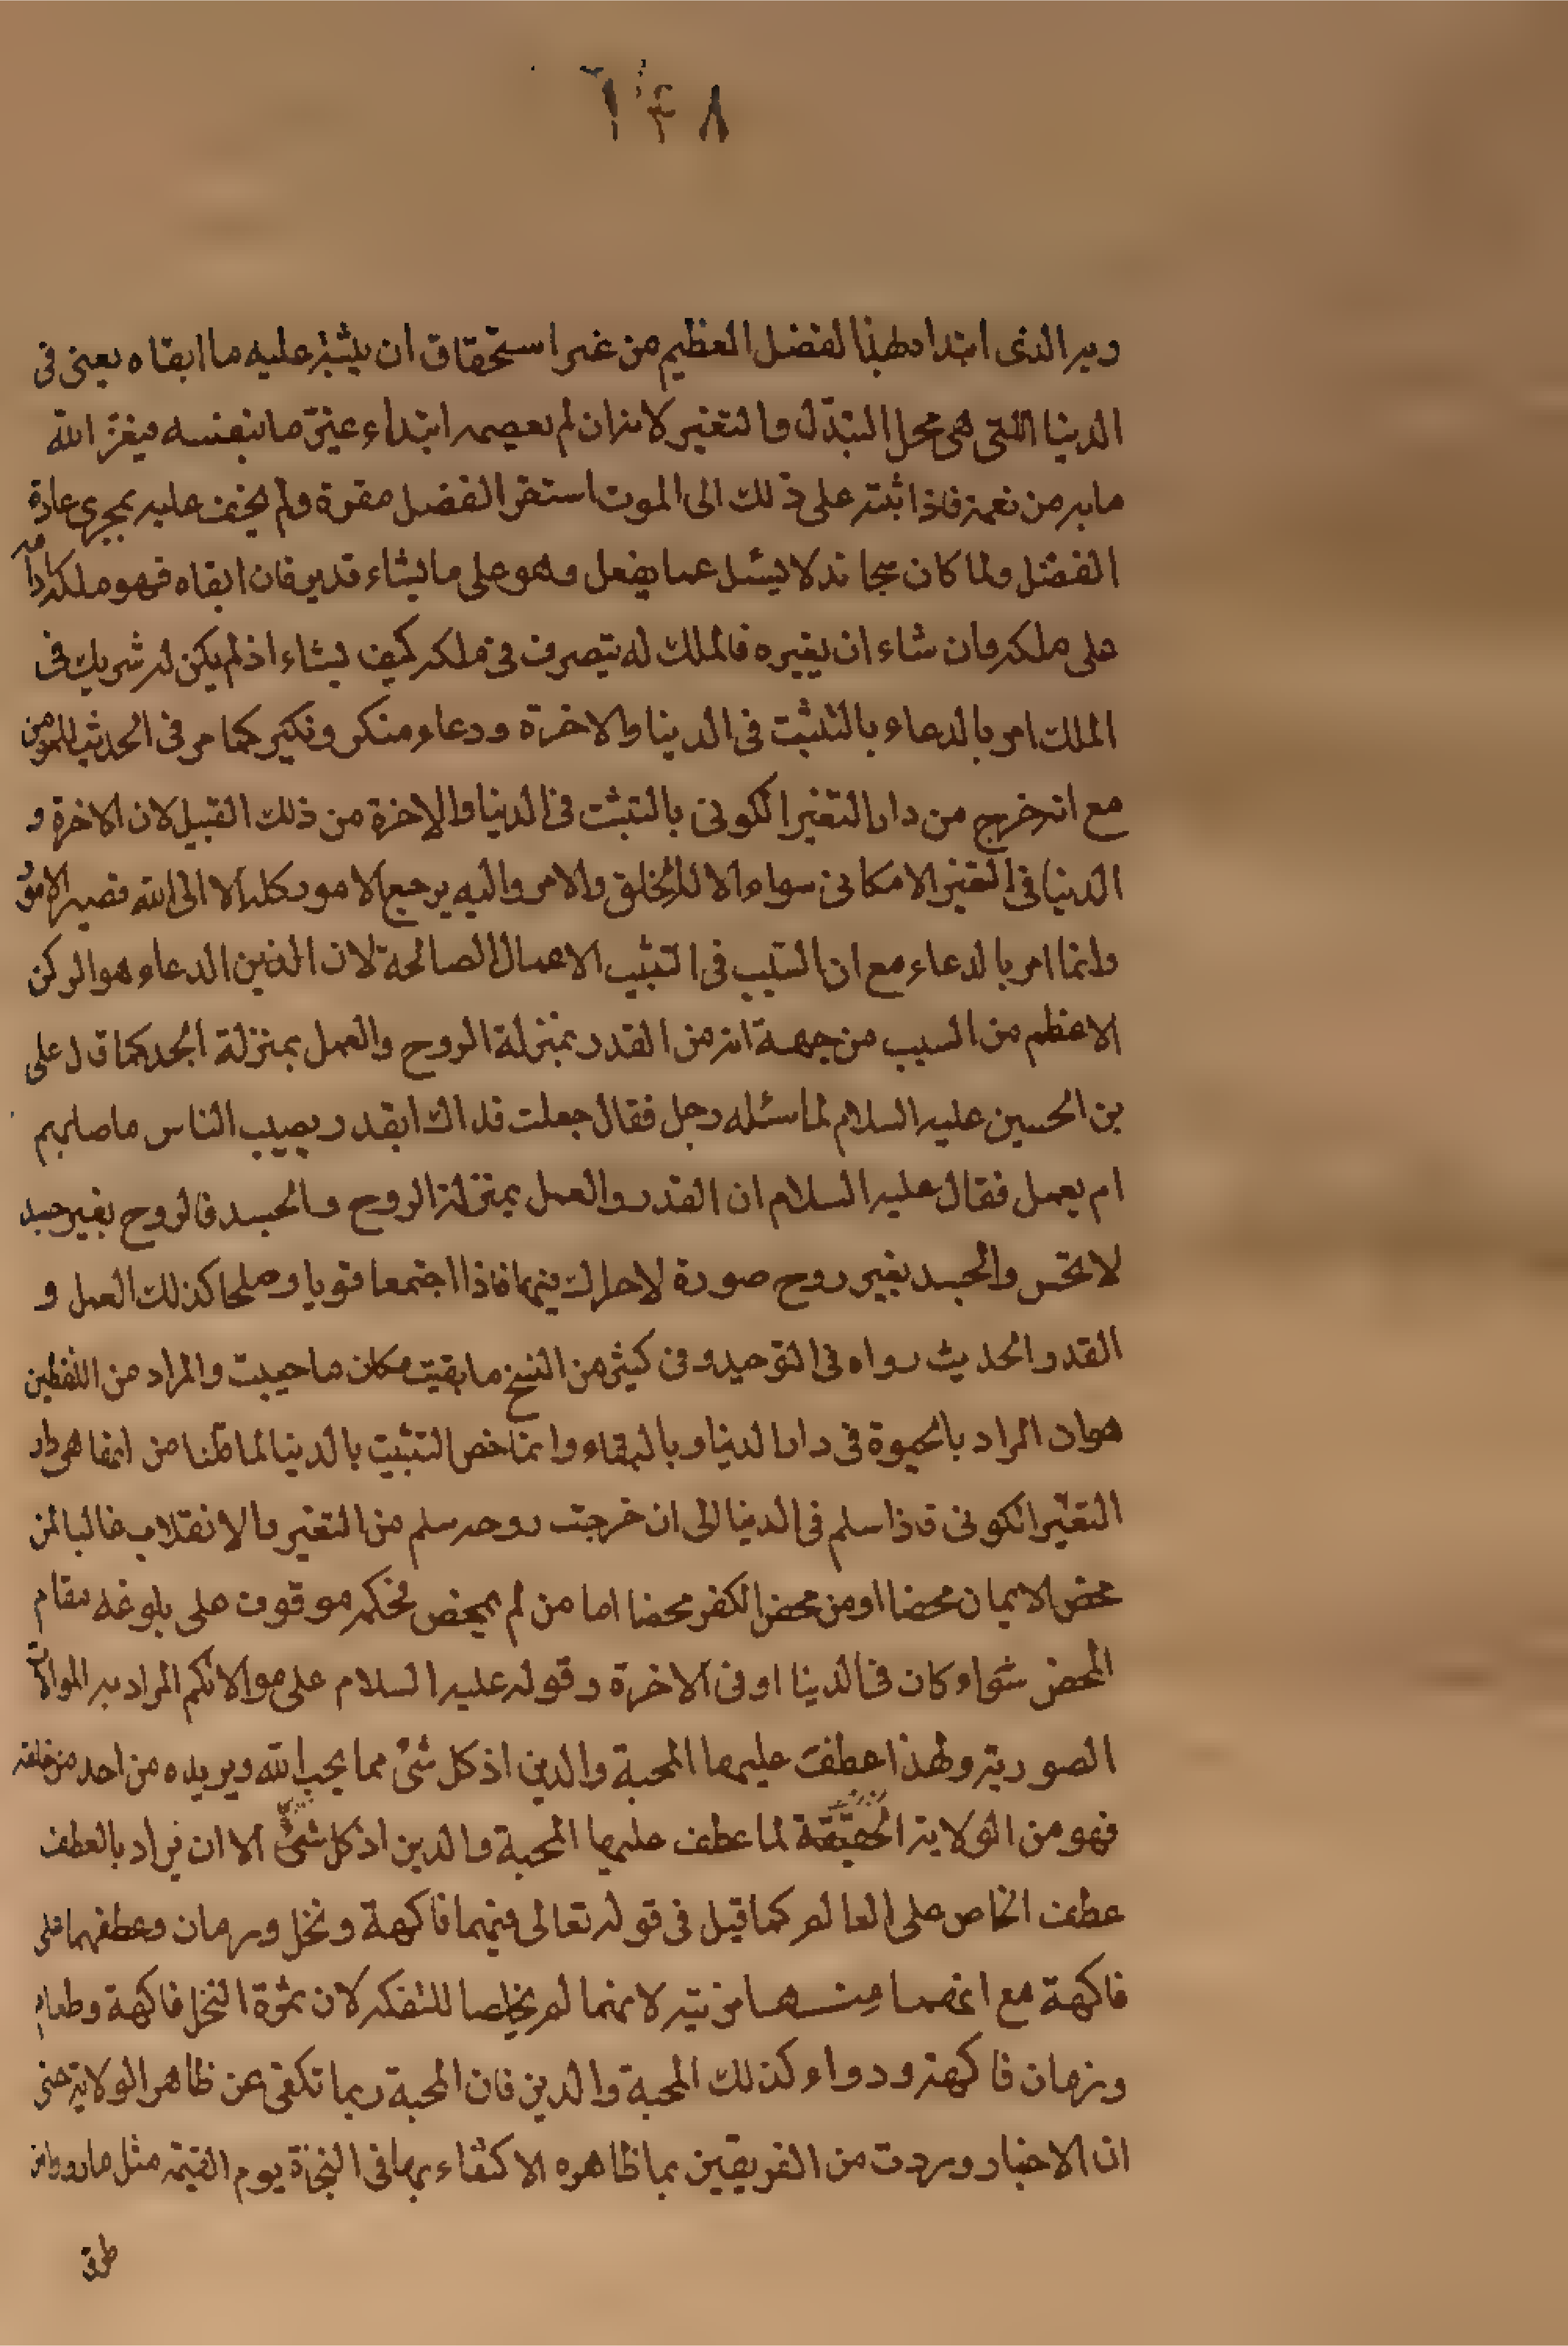 ١٤٨
وبه الذى ابتداه بهذا الفضل العظيم من غير استحقاق ان يثبته عليه ما ابقاه يعنى فى
الدينا اللتى هى محل التبدّل والتغير لانه ان لم يعصمه ابتداء غيّر ما بنفسه فيغيّر الله
ما به من نعمة فاذا ثبته على ذلك الى الموت استقر الفضل مقرة ولم يخف عليه بمجرى عادة
الفضل ولما كان سبحانه لا يسئل عما يفعل وهو على ما يشاء قدير فان ابقاه فهو ملكه
على ملكه وان شاء ان يغيره فالملك له يتصرف فى ملكه كيف يشاء اذ لم يكن له شريك فى
الملك امر بالدعاء بالتثبت فى الدينا والاخرة ودعاء منكر ونكير كما مر فى الحديث للمؤمن
مع انه خرج من دار التغير الكونى بالتبثت فى الدنيا والاخرة من ذلك القبيل لان الاخرة و
الدنيا فى التغير الامكانى سواء الا له الخلق والامر واليه يرجع الامور كلها الا الى الله تصير الامور
وانما امر بالدعاء مع ان السبب فى التثبيت الاعمال الصالحة لان الدعاء هو الركن
الاعظم من السبب من جهة انه من القدر بمنزلة الروح والعمل بمنزلة الجسد كما قال على
بن الحسين عليه السلام لما سئله رجل فقال جعلت فداك ابقدر يصيب الناس ما صابهم
ام بعمل فقال عليه السلام ان القدر والعمل بمنزلة الروح والجسد فالروح بغير جسد
لا تحس والجسد بغير روح صورة لا حراك فيها فاذا اجتمعا قويا وصلحا كذلك العمل و
القدر والحديث رواه فى التوحيد وفى كثير من النسخ ما بقيت مكان ما حييت والمراد من اللفظين
هو ان المراد بالحيوة فى دار الدنيا وبالبقاء وانما خص التثبيت بالدينا لما قلنا من انها هى دار
التغيّر الكونى فاذا سلم فى الدنيا الى ان خرجت روحه سلم من التغير والانقلاب غالبا لمن
محض الايمان محضا او من محض الكفر محضا اما من لم يمحض فحكمه موقوف على بلوغه مقام
المحض سواء كان فى الدينا او فى الاخرة وقوله عليه السلام على موالاتكم المراد به الموالاة
الصورية ولهذا عطف عليها المحبة والدين اذ كل شئ مما يحب الله ويريده من احد من خلقه
فهو من الولاية الحقيقة لما عطف عليها المحبة والدين اذ كل شئ الا ان يراد بالعطف
عطف الخاص على العام كما قيل فى قوله تعالى فيهما فاكهة ونخل ورمان وعطفهما على
فاكهة مع انهما منها لمزية لانهما لم يخلصا للتفكه لان ثمرة النخل فاكهة وطعام
ورمان فاكهة ودواء وكذلك المحبة والدين فان المحبة ربما تكفى عن ظاهر الولاية حتى
ان الاخبار وردت من الفريقين بما ظاهره الاكتفاء بها فى النجاة يوم القيمة مثل ما روى من
طرق